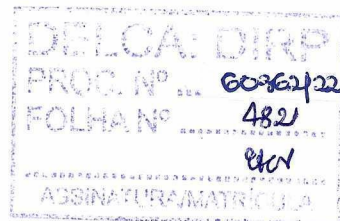 DELCA: DIRP
PROC. Nº ... 60962/22
FOLHA Nº ... 4821
ASSINATURA/MATRÍCULA